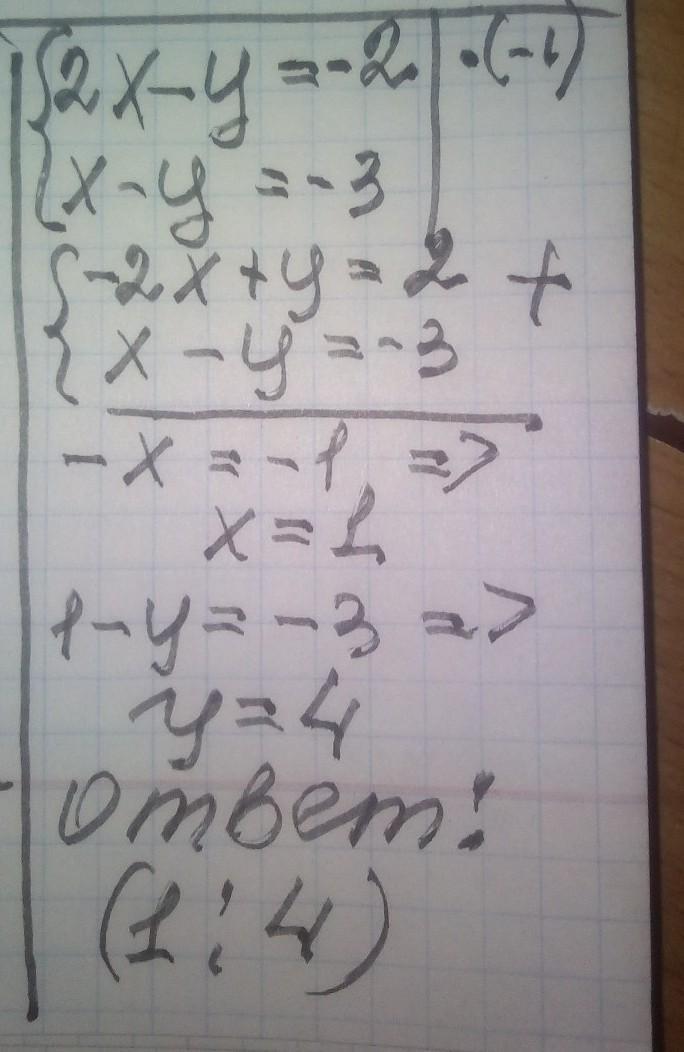 {2x-y=-2 | ·(-1)
{x-y=-3
{-2x+y=2 +
{x-y=-3
-x=-1 =>
x=1
1-y=-3 =>
y=4
Ответ:
(1;4)